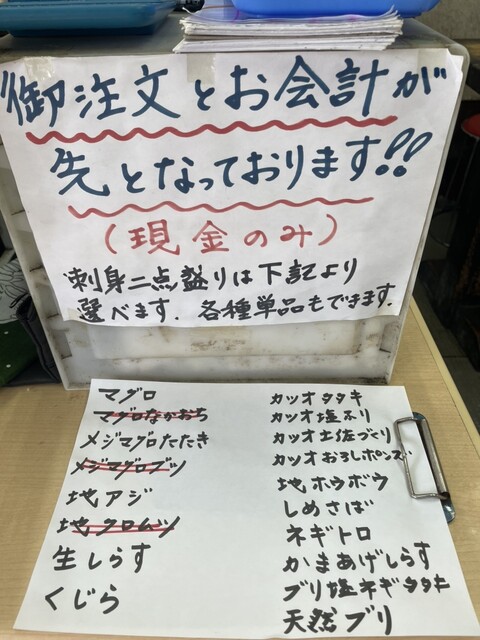 御注文とお会計が
先となっております!!
(現金のみ)
刺身二点盛りは下記より
選べます. 各種単品もできます.
マグロ
マグロなかおち
メジマグロたたき
メジマグロブツ
地アジ
地クロムツ
生しらす
くじら
カツオタタキ
カツオ塩ふり
カツオ土佐づくり
カツオおろしポンズ
地ホウボウ
しめさば
ネギトロ
かまあげしらす
ブリ塩ネギタタキ
天然ブリ